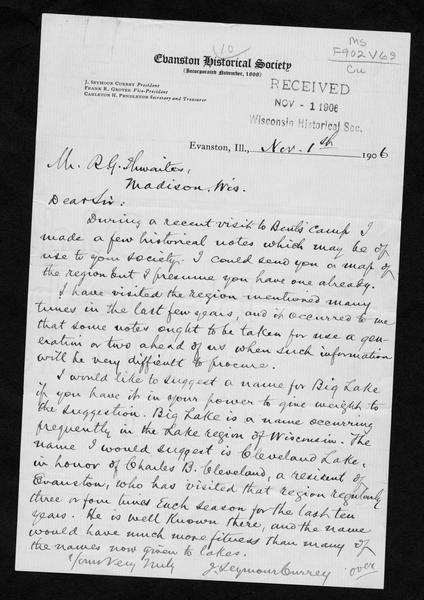 10
Evanston Historical Society
(Incorporated November, 1898)
MS
F902 V69
Cu
J. Seymour Currey President
Frank R. Grover Vice-President
Carleton H. Pendleton Secretary and Treasurer
RECEIVED
NOV - 1 1906
Wisconsin Historical Soc.
Evanston, Ill., Nov. 1st, 1906
Mr. R. G. Thwaites,
Madison, Wis.
Dear Sir:
During a recent visit to Bent's Camp I
made a few historical notes which may be of
use to your society. I could send you a map of
the region but I presume you have one already.
I have visited the region mentioned many
times in the last few years, and it occurred to me
that some notes ought to be taken for use a gen-
eration or two ahead of us when such information
will be very difficult to procure.
I would like to suggest a name for Big Lake
if you have it in your power to give weight to
the suggestion. Big Lake is a name occurring
frequently in the Lake region of Wisconsin. The
name I would suggest is Cleveland Lake,
in honor of Charles B. Cleveland, a resident of
Evanston, who has visited that region regularly
three or four times each season for the last ten
years. He is well known there, and the name
would have much more fitness than many of
the names now given to lakes.
Yours Very Truly
J. Seymour Currey
over